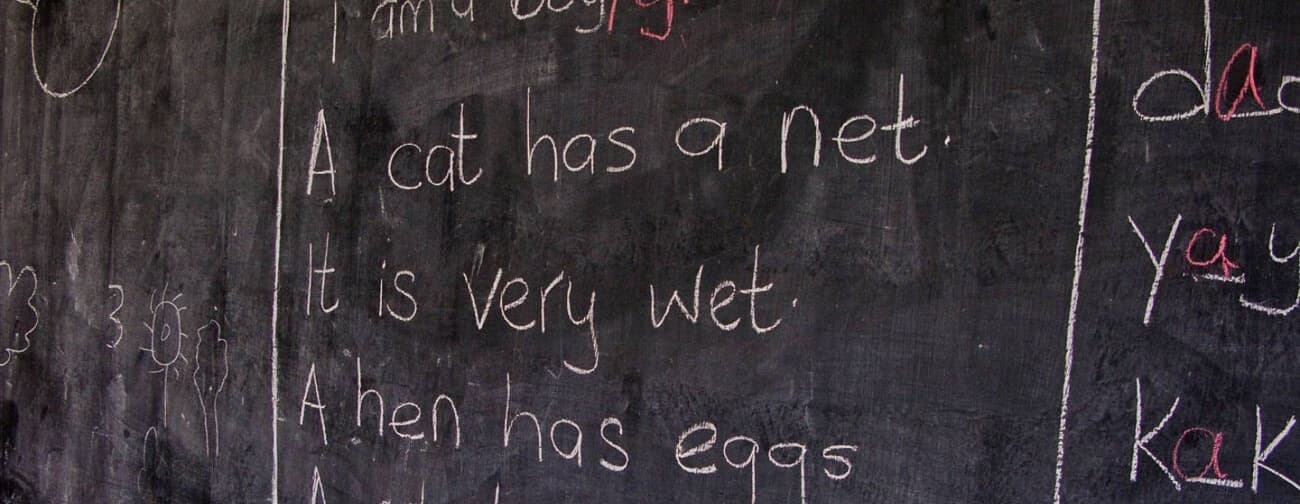 I am a boy/g
A cat has a net.
It is very wet.
A hen has eggs
A
da
yay
Kak